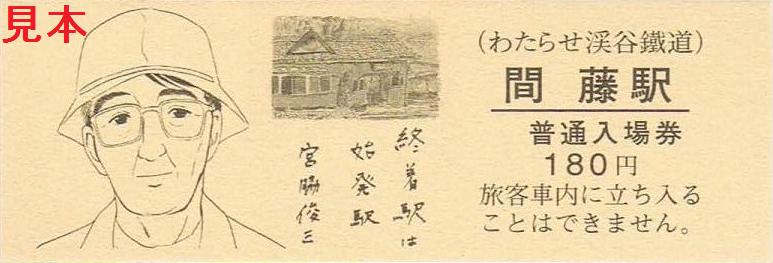 見本
(わたらせ渓谷鐵道)
間藤駅
普通入場券
180円
旅客車内に立ち入る
ことはできません。
終着駅は
始発駅
宮脇俊三